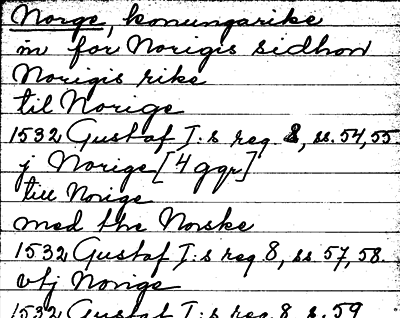 Norge, konungarike
in för Norigis sidhon
Norigis rike
til Norige
1532 Gustaf I:s reg. 8, ss. 54, 55.
j Norige [4 ggr]
till Norige
med the Norske
1532 Gustaf I:s reg 8, ss 57, 58.
vtj Norige
1532 Gustaf I:s reg. 8, s. 59